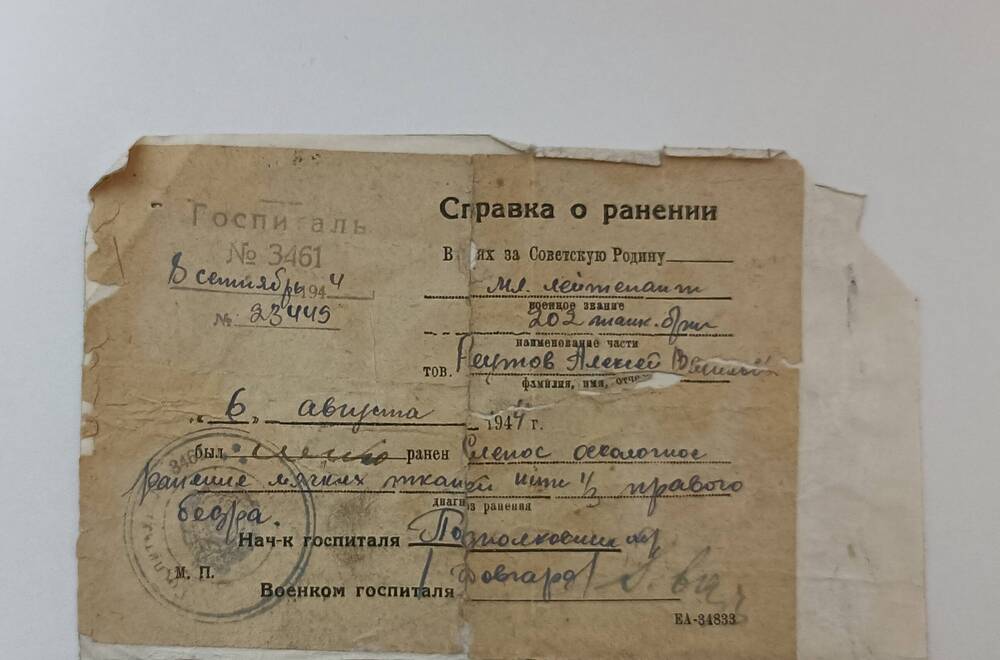 Госпиталь
№ 3461
8 сентябрь 1944
№ 23445
Справка о ранении
В иях за Советскую Родину
мл. лейтенант
военное звание
202 танк. бр
наименование части
тов. Реутов Алексей Василь
фамилия, имя, отче
„ 6 „ августа 1944 г.
был ранен Слепое осколочное
ранение мягких тканей 1/3 правого
диагноз ранения
бедра.
Нач-к госпиталя Подполковник м/с
М. П.
Военком госпиталя
ЕА-34833
3461